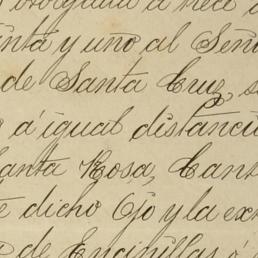 otorgada a nece
inta y uno al Seño
de Santa Cruz, s
á igual distanci
anta Rosa, Cant
e dicho Ojo y la ex
de Encinillas